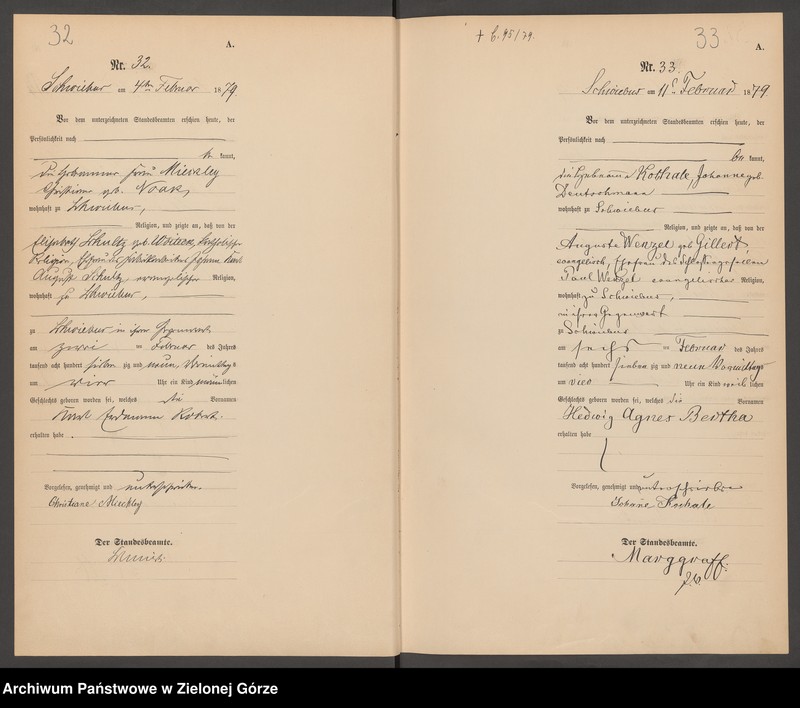 32
A.
Nr. 32.
Schwiebus am 4ten Februar 1879
Vor dem unterzeichneten Standesbeamten erschien heute, der
Persönlichkeit nach
be kannt,
die Hebamme Frau Mieckley
Christiane geb. Noack,
wohnhaft zu Schwiebus,
Religion, und zeigte an, daß von der
Elisabeth Schultz geb. katholischer
Religion, Ehefrau des Fabrikarbeiter Johann Karl
August Schultz, evangelischer Religion,
wohnhaft zu Schwiebus,
zu Schwiebus in ihrer Gegenwart
am zwei ten Februar des Jahres
tausend acht hundert sieben zig und neun, Vormittags
um vier Uhr ein Kind männlichen
Geschlechts geboren worden sei, welches die Vornamen
Karl Hermann Robert.
erhalten habe.
Vorgelesen, genehmigt und unterschrieben.
Christiane Mieckley
Der Standesbeamte.
+ C. 95/79.
33
A.
Nr. 33.
Schwiebus am 11t Februar 1879.
Vor dem unterzeichneten Standesbeamten erschien heute, der
Persönlichkeit nach
be kannt,
die Hebamme Kothale, Johanne geb.
Deutschmann
wohnhaft zu Schwiebus
Religion, und zeigte an, daß von der
Auguste Wenzel geb Gillert,
evangelisch, Ehefrau des Schlossergesellen
Paul Wenzel evangelischer Religion,
wohnhaft zu Schwiebus,
in ihrer Gegenwart
zu Schwiebus
am sechs ten Februar des Jahres
tausend acht hundert sieben zig und neun Vormittags
um vier Uhr ein Kind weiblichen
Geschlechts geboren worden sei, welches die Vornamen
Hedwig Agnes Bertha
erhalten habe
Vorgelesen, genehmigt und unterschrieben
Johanne Kothale
Der Standesbeamte.
Marggraff.
Archiwum Państwowe w Zielonej Górze